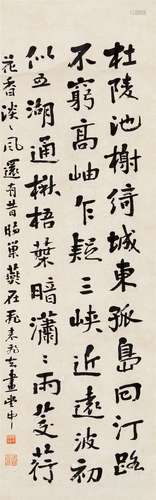 杜陵池榭綺城東孤島回汀路
不窮高岫乍疑三峽近遠波初
似五湖通楸梧葉暗瀟〻雨菱荇
花香淡〻風還有昔時巢燕在飛来飛去畫堂中